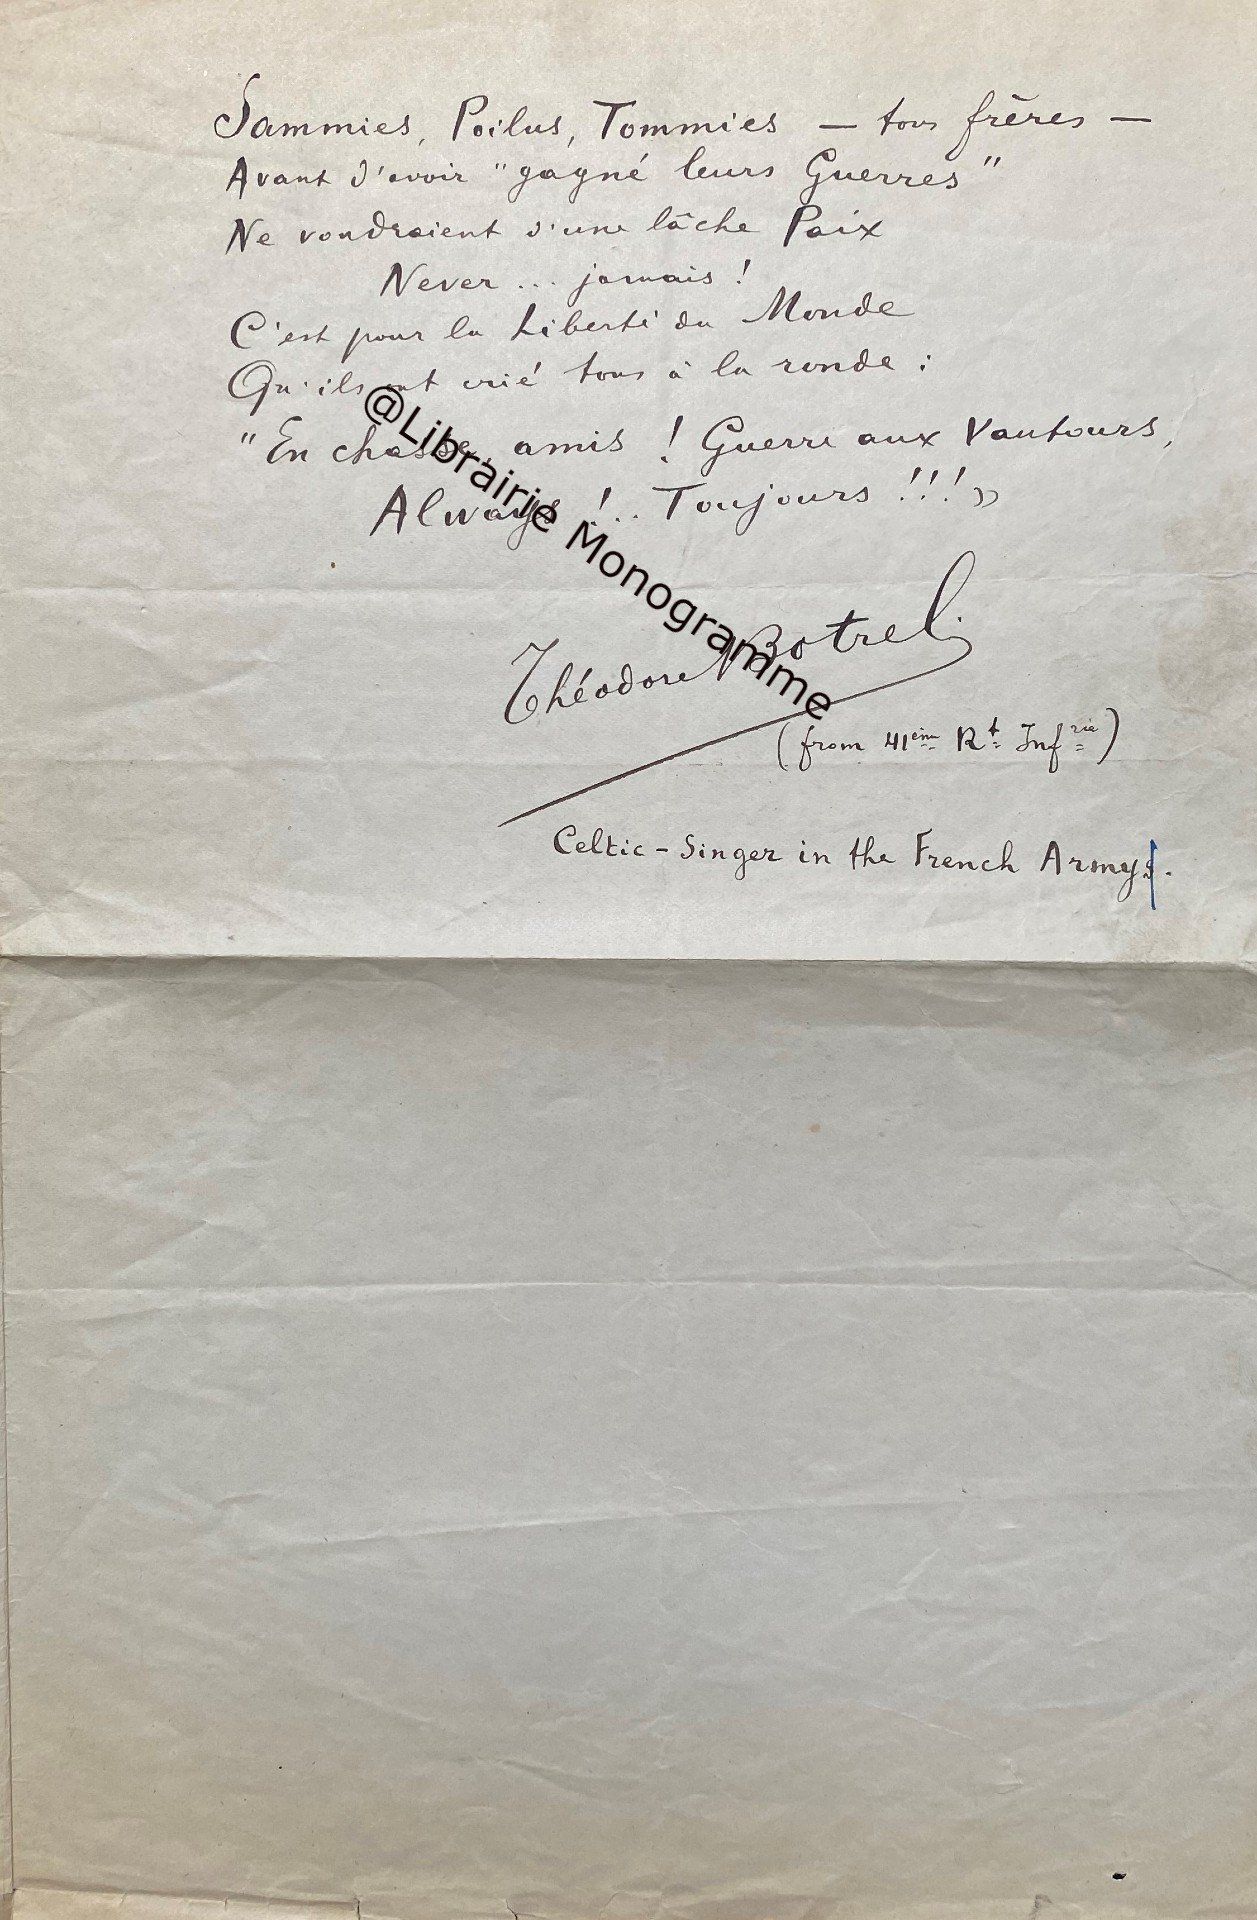 Sammies, Poilus, Tommies — tous frères —
Avant d'avoir "gagné leurs Guerres"
Ne voudraient d'une lâche Paix
Never ... jamais !
C'est pour la Liberté du Monde
Qu'ils ont crié tous à la ronde :
"En chasse, amis ! Guerre aux Vautours,
Always !.. Toujours !!! »
Théodore Botrel.
(from 41ème Rt Infrie)
Celtic-Singer in the French Armys.
@Librairie Monogramme